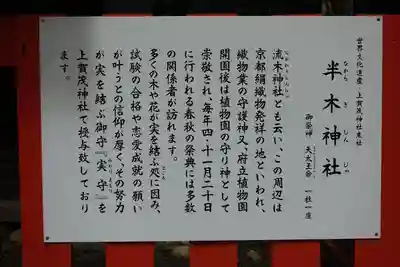 世界文化遺産・上賀茂神社末社
半木神社
なからぎじんじゃ
御祭神 天太玉命 一社一座
流木神社とも云い、この周辺は
京都絹織物発祥の地といわれ、
織物業の守護神又、府立植物園
開園後は植物園の守り神として
崇敬され、毎年四・十一月二十日
に行われる春秋の祭典には多数
の関係者が訪れます。
多くの木や花が実を結ぶ処に因み、
試験の合格や恋愛成就の願い
が叶うとの信仰が厚く、その努力
が実を結ぶ御守『実守』を
上賀茂神社で授与致しており
ます。